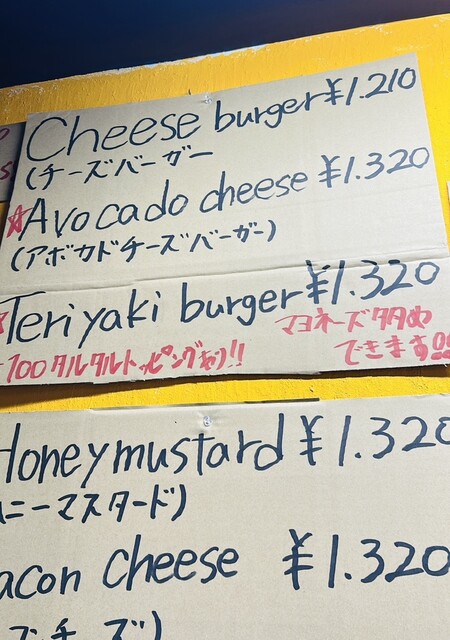 Cheese burger ¥1.210
(チーズバーガー
☆Avocado cheese ¥1.320
(アボカドチーズバーガー)
Teriyaki burger ¥1.320
100タルタルトッピングあり!! マヨネーズ多め
できます!!
Honeymustard ¥1.320
ハニーマスタード)
acon cheese ¥1.320
ズチーズ)